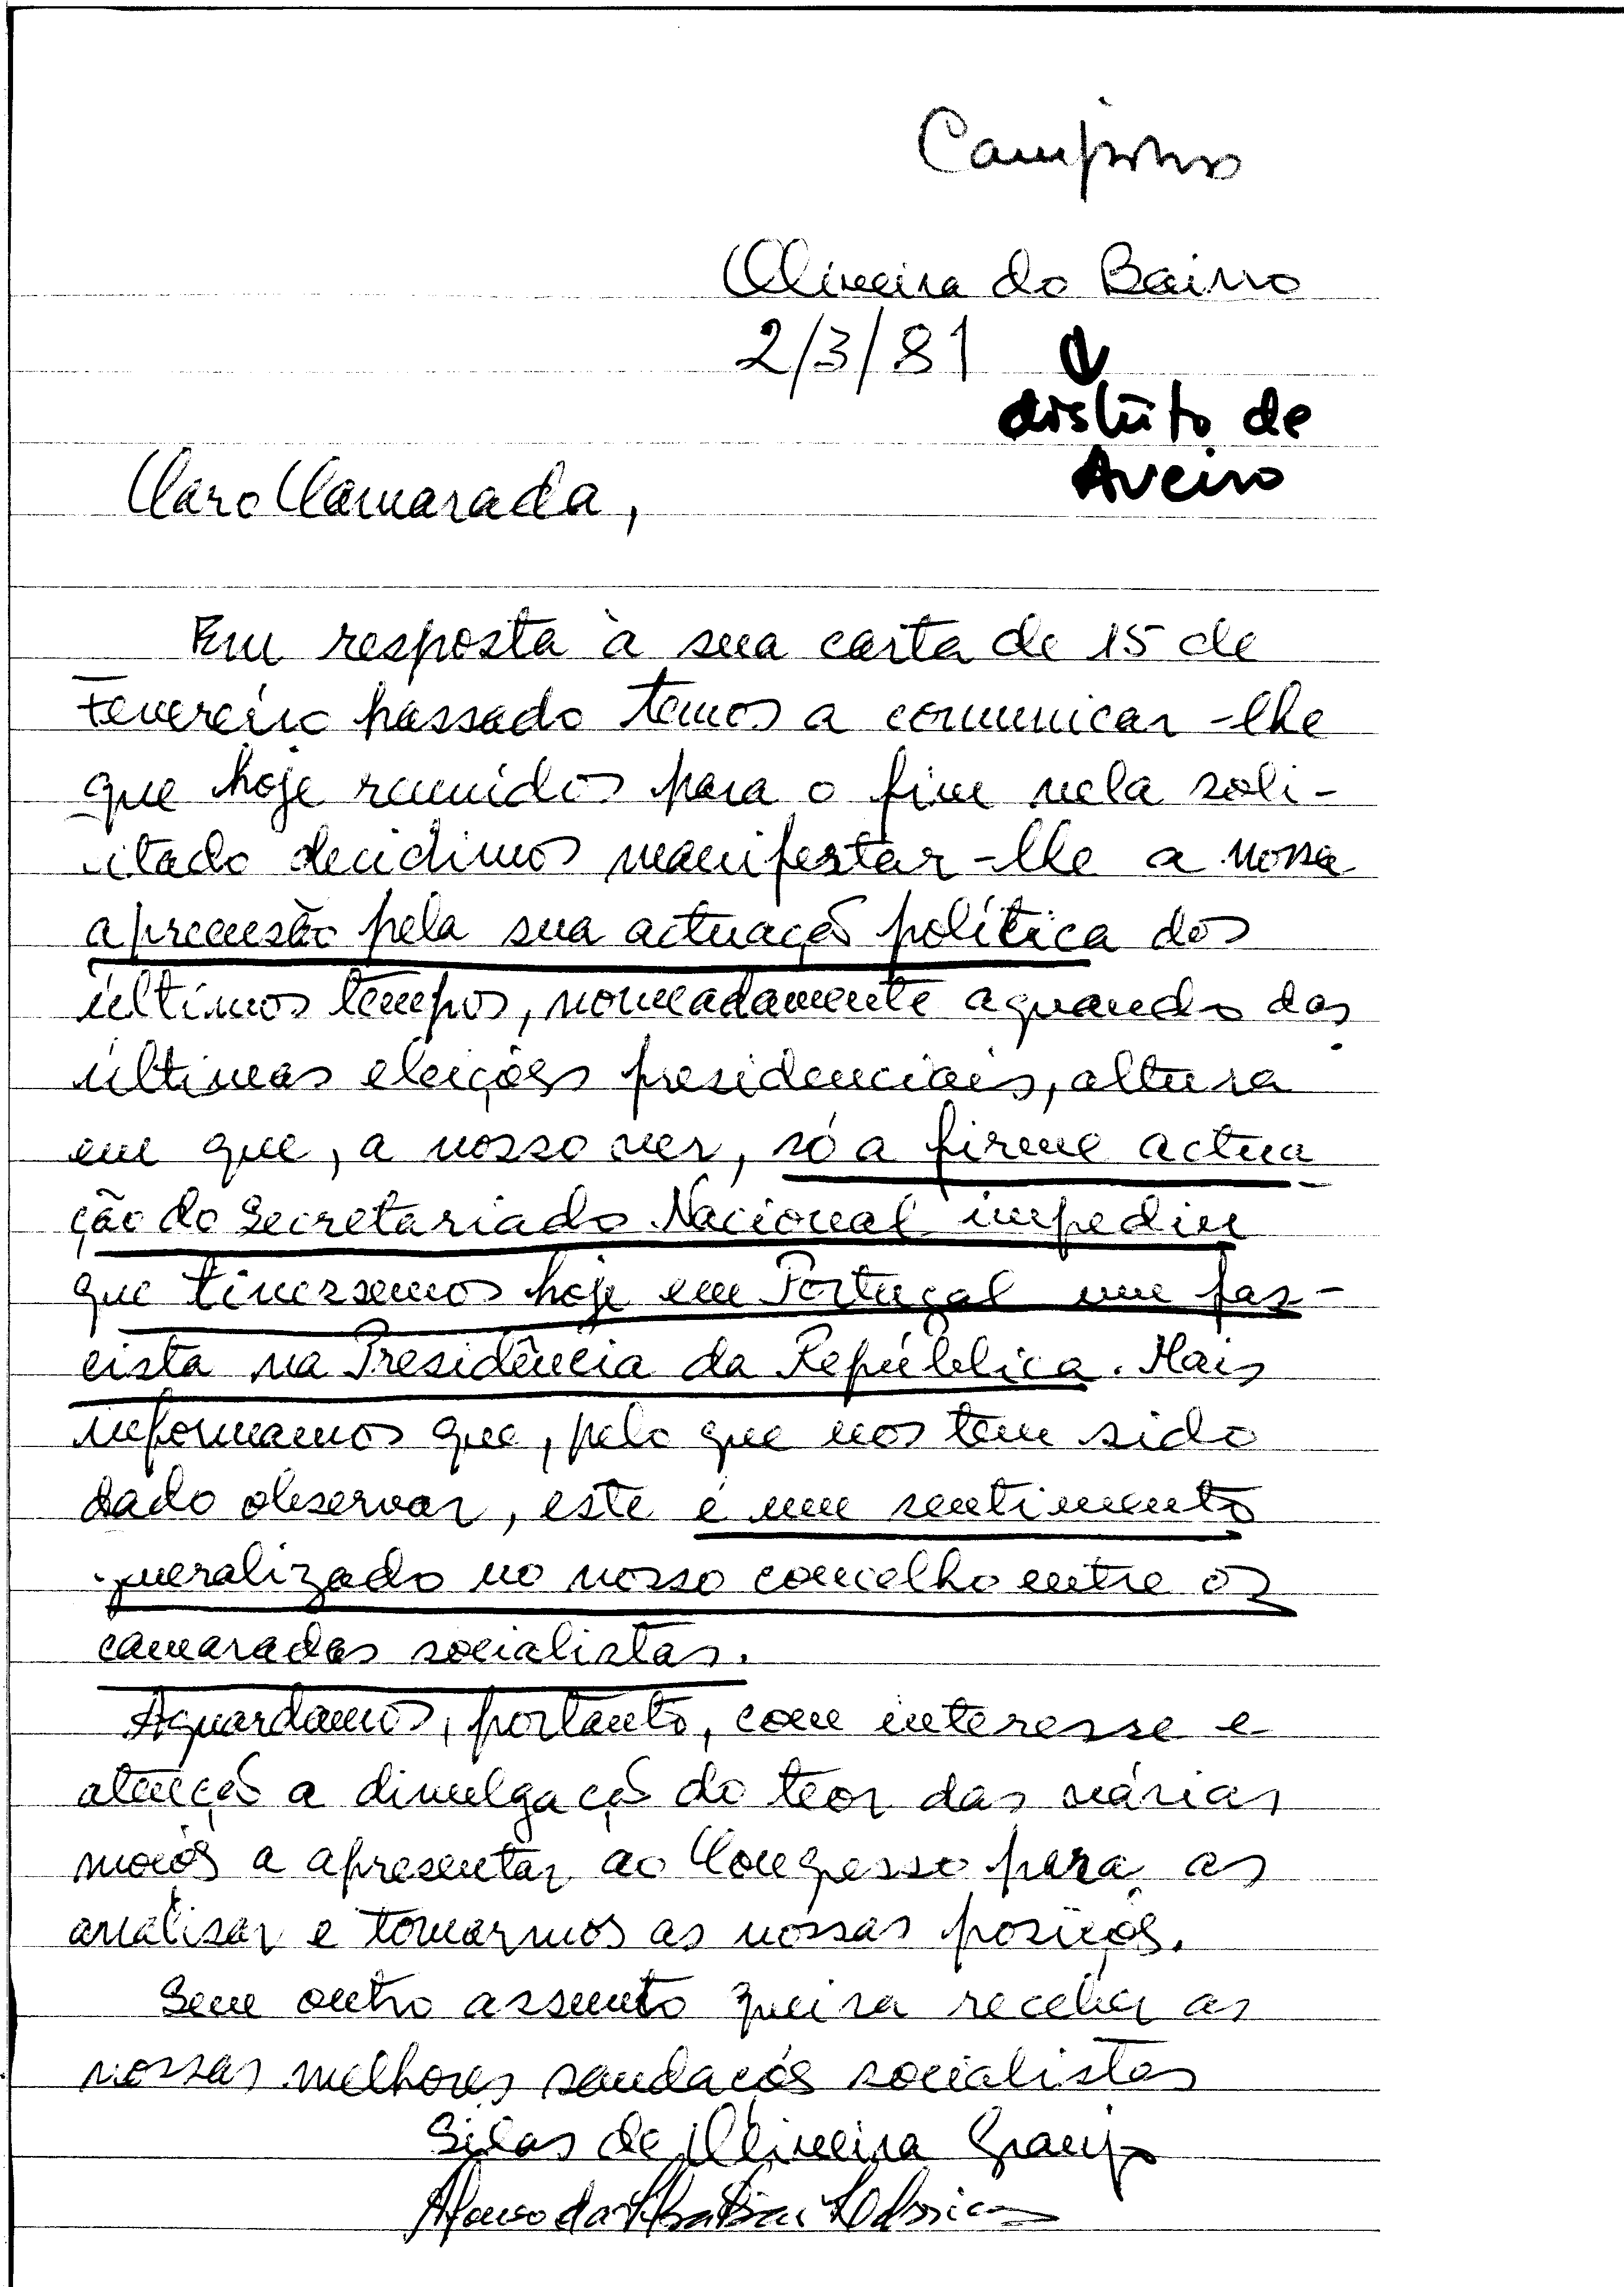 Oliveira do Bairro
2/3/81
distrito de
Aveiro
Caro Camarada,
Em resposta à sua carta de 15 de
Fevereiro passado temos a comunicar-lhe
que hoje reunidos para o fim nela soli-
citado decidimos manifestar-lhe a nossa
apreensão pela sua actuação política dos
últimos tempos, nomeadamente aquando das
últimas eleições presidenciais, altura
em que, a nosso ver, só a firme actua
ção do Secretariado Nacional impediu
que tivessemos hoje em Portugal um fas-
cista na Presidência da República. Mais
informamos que, pelo que nos tem sido
dado observar, este é um sentimento
generalizado no nosso concelho entre os
camaradas socialistas.
Aguardamos, portanto, com interesse e
atenção a divulgação do teor das várias
moções a apresentar ao Congresso para as
analisar e tomarmos as nossas posições.
Sem outro assunto queira receber as
nossas melhores saudações socialistas
Silas de Oliveira Granjo